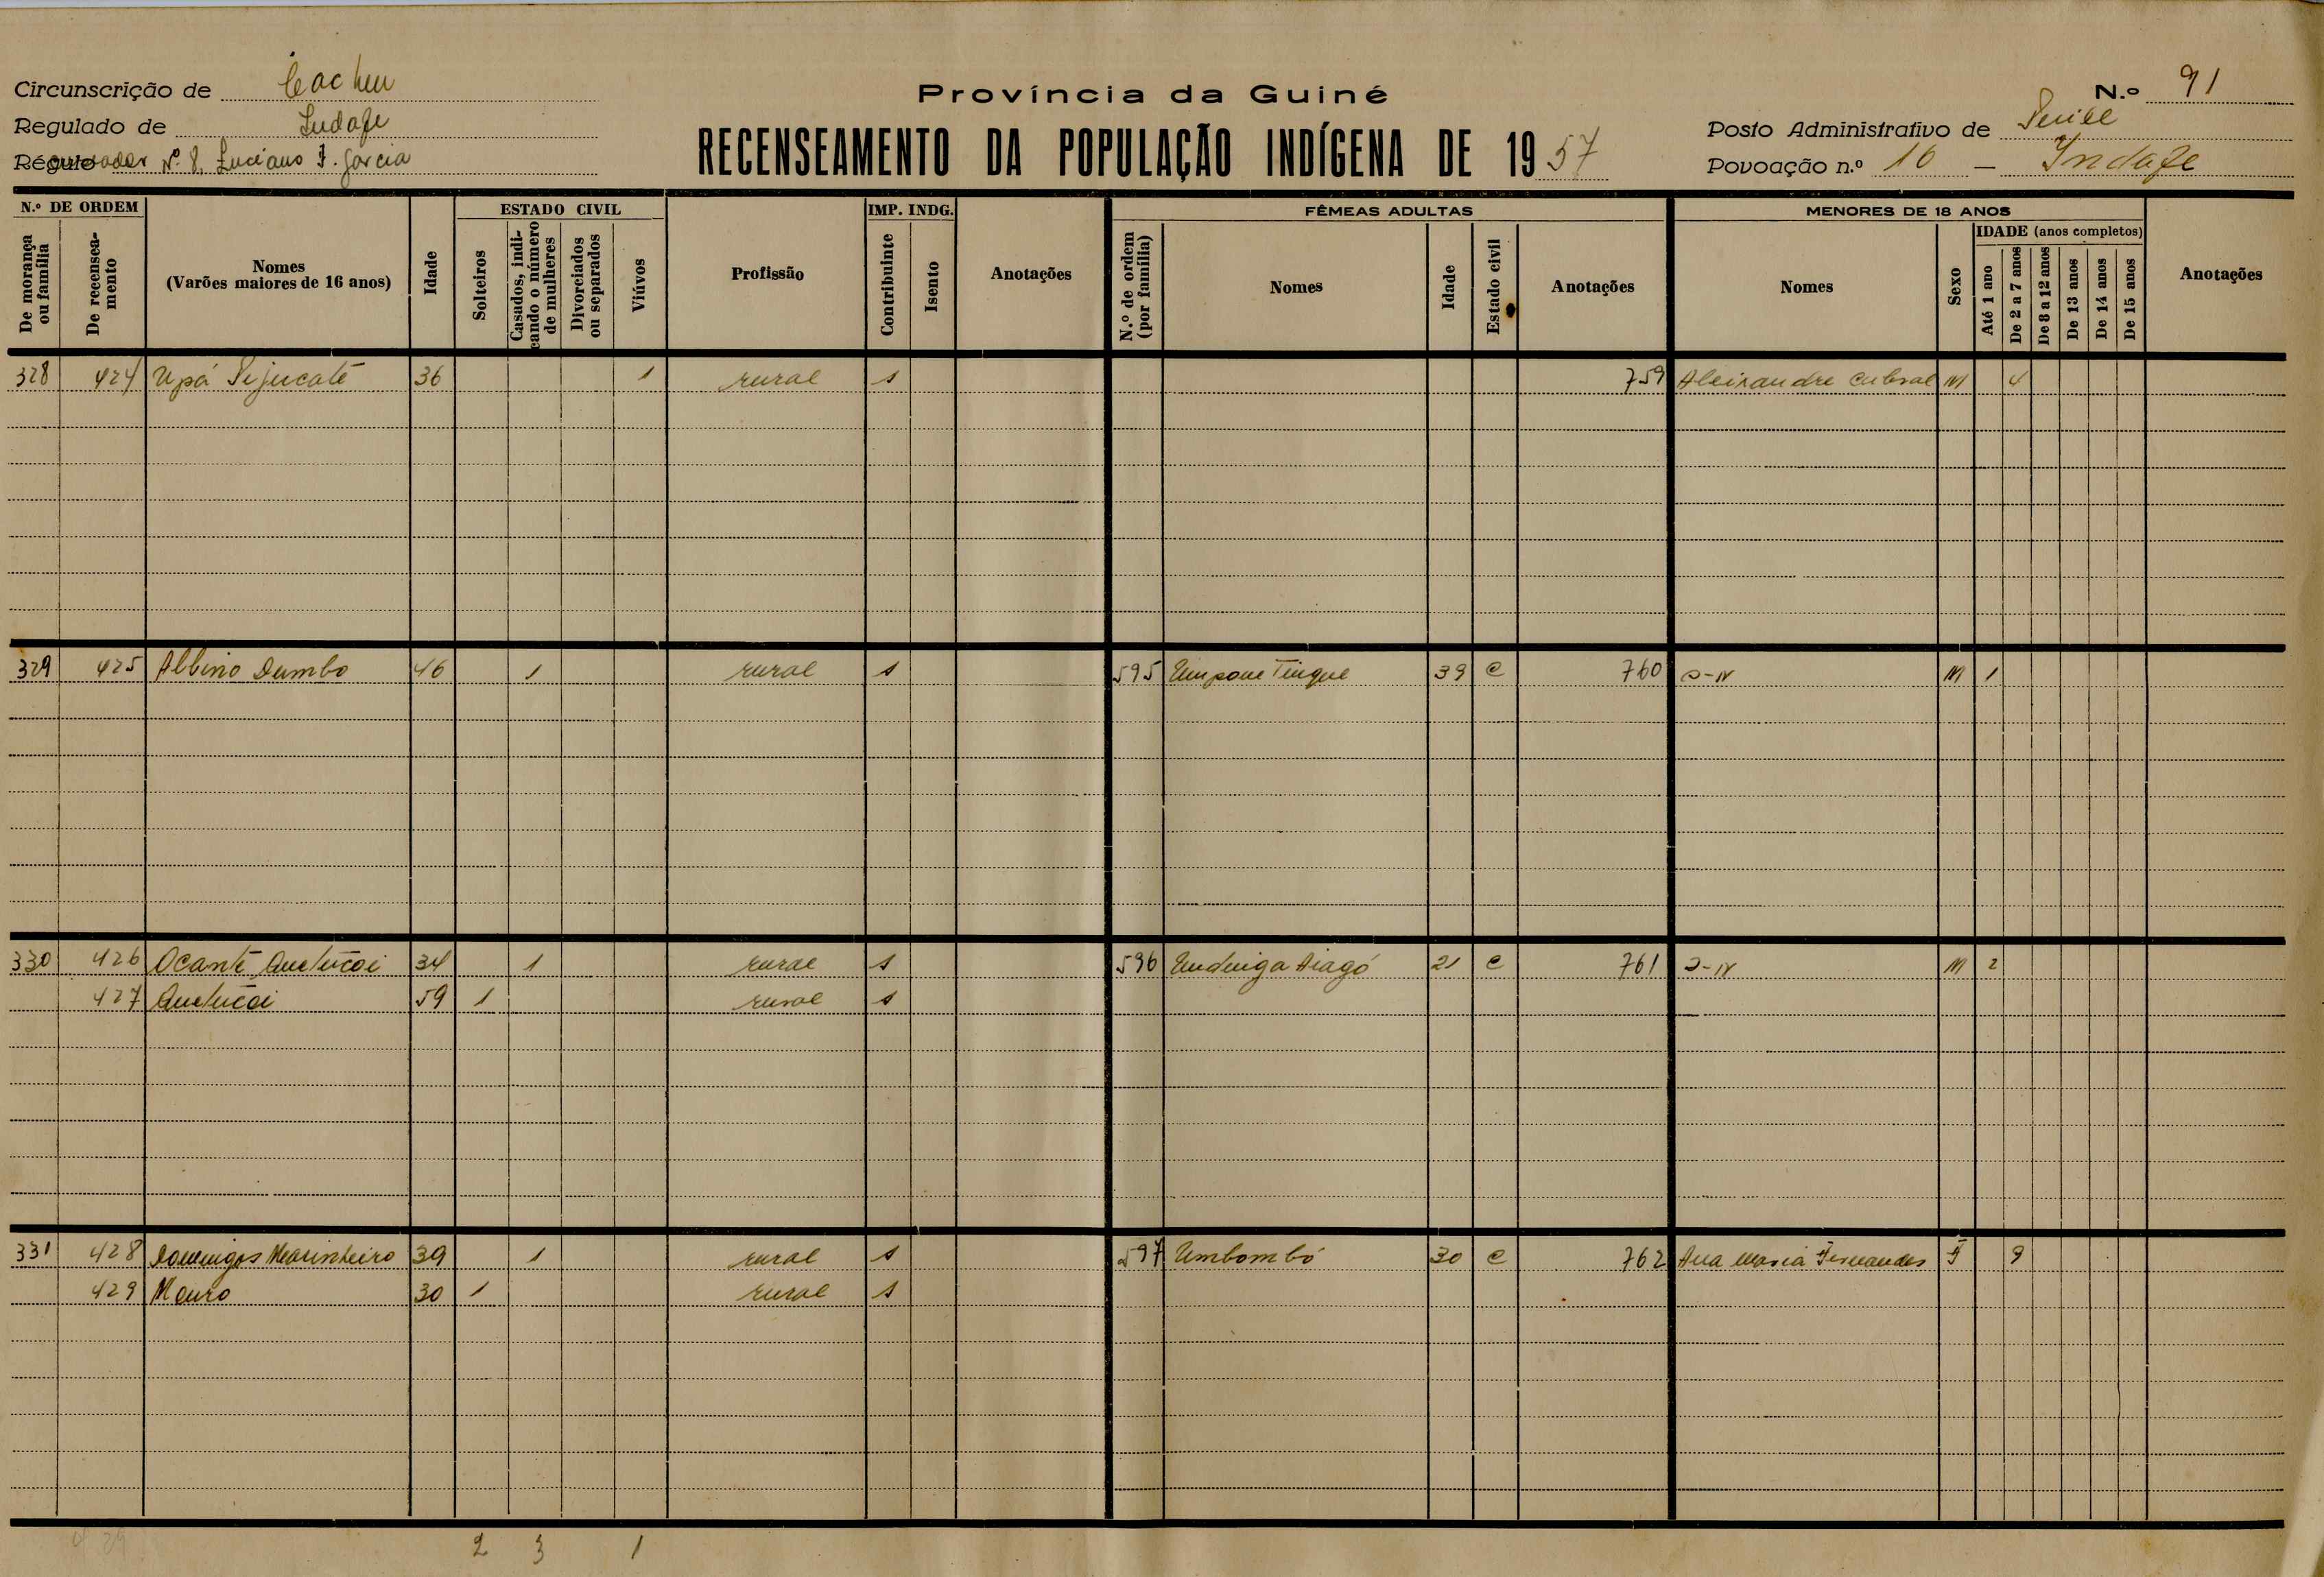 Circunscrição de Cacheu
Regulado de Indafe
Nº 8, Luciano F. Garcia
Província da Guiné
RECENSEAMENTO DA POPULAÇÃO INDÍGENA DE 1957
N.º 91
Posto Administrativo de
Povoação n.º 16 – Indafe
N.º DE ORDEM
De morança ou família
De recensea-mento
Nomes
(Varões maiores de 16 anos)
Idade
ESTADO CIVIL
Solteiros
Casados, indi-cando o número de mulheres
Divorciados ou separados
Viúvos
Profissão
IMP. INDG.
Contribuinte
Isento
Anotações
FÊMEAS ADULTAS
N.º de ordem (por família)
Nomes
Idade
Estado civil
Anotações
MENORES DE 18 ANOS
Nomes
Sexo
IDADE (anos completos)
Até 1 ano
De 2 a 7 anos
De 8 a 12 anos
De 13 anos
De 14 anos
De 15 anos
Anotações
328 424 Upá 36 1 rural 1 759 Aleixandre Cabral M 4
329 425 Albino Dumbo 46 1 rural 1 595 39 C 760 M 1
330 426 Ocante 34 1 rural 1 596 21 C 761 M 2
427 59 1 rural 1
331 428 Domingos Marinheiro 39 1 rural 1 597 Umbombó 30 C 762 Ana Maria Fernandes F 9
429 Mauro 30 1 rural 1
429 2 3 1